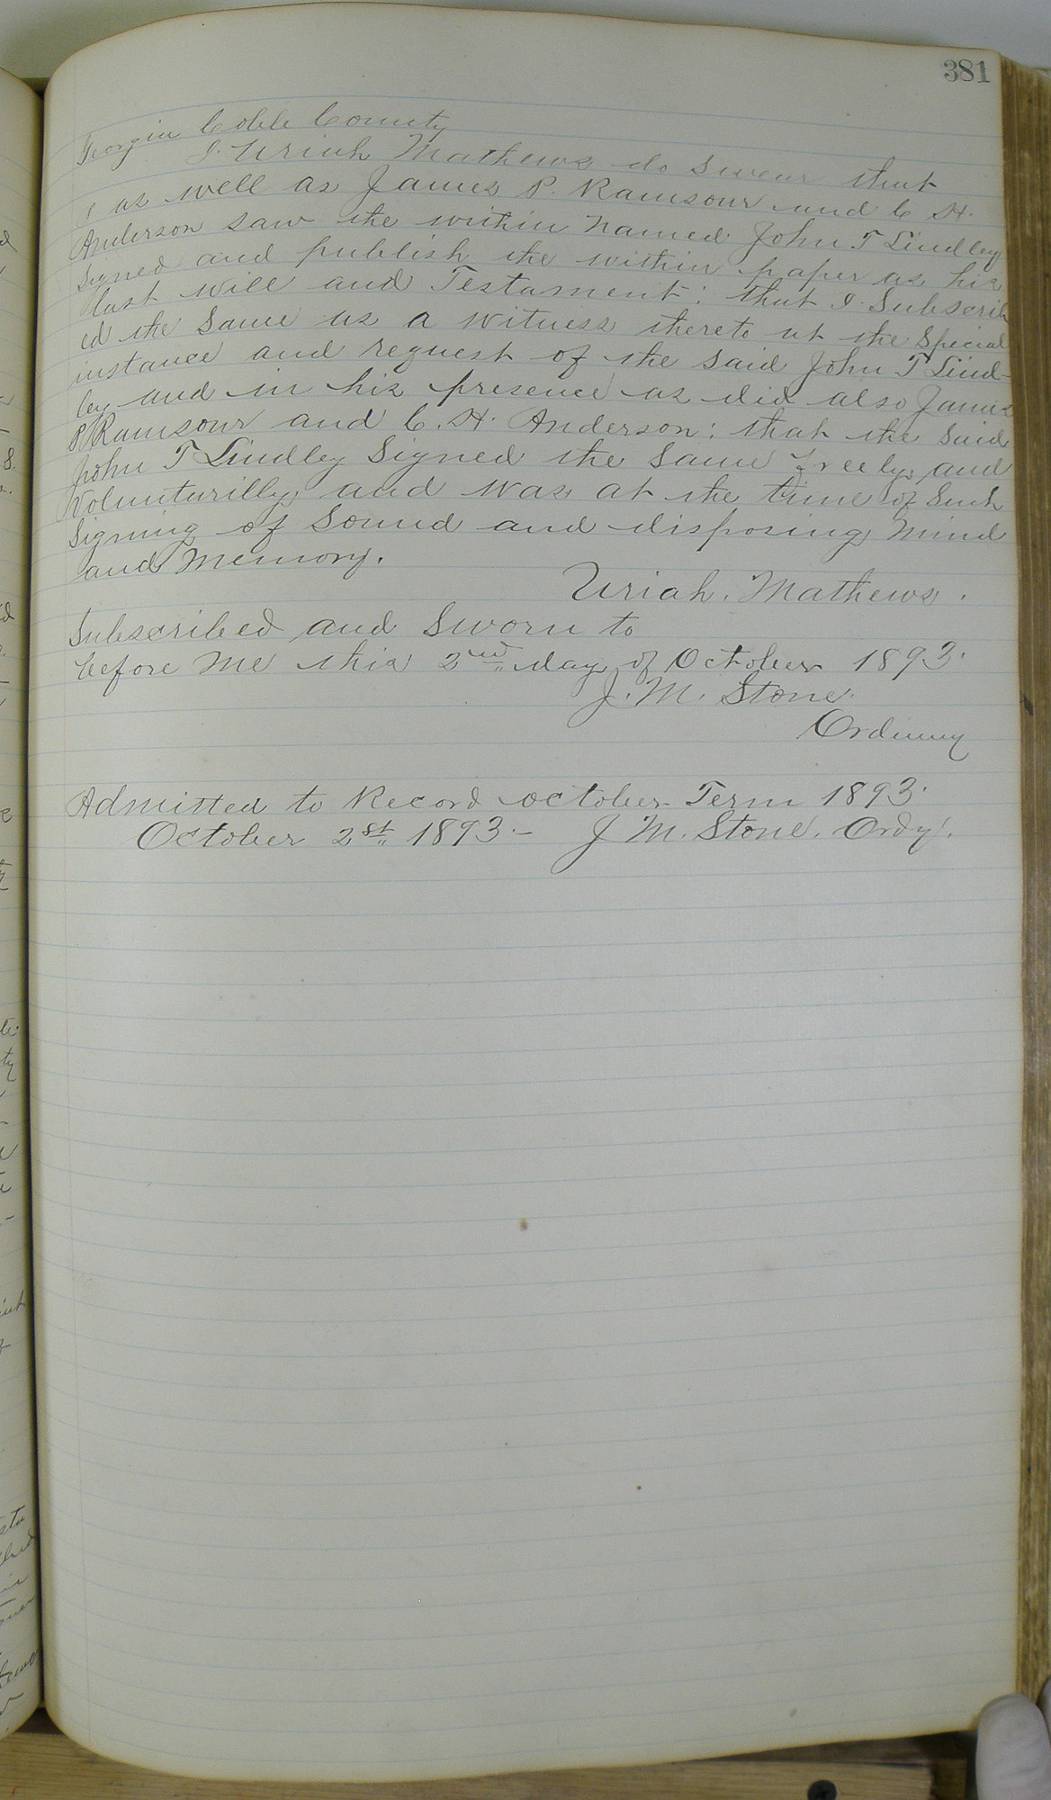 381
Georgia Cobb County
I. Uriah Mathews do Swear that
I as well as James P. Ramsour and C. H.
Anderson saw the within named John T Lindley
Signed and publish the within paper as his
last will and Testament: that I Subscrib
ed the Same as a witness thereto at the Special
instance and request of the said John T Lind-
ley and in his presence as did also James
P Ramsour and C. H. Anderson: that the said
John T Lindley Signed the Same freely and
Volunturilly, and was at the time of Such
Signing of Sound and disposing mind
and Memory.
Uriah. Mathews.
Subscribed and Sworn to
before me this 2nd day of October 1893.
J. M. Stone.
Ordinary
Admitted to Record October Term 1893.
October 2st 1893.- J M. Stone. Ordy.